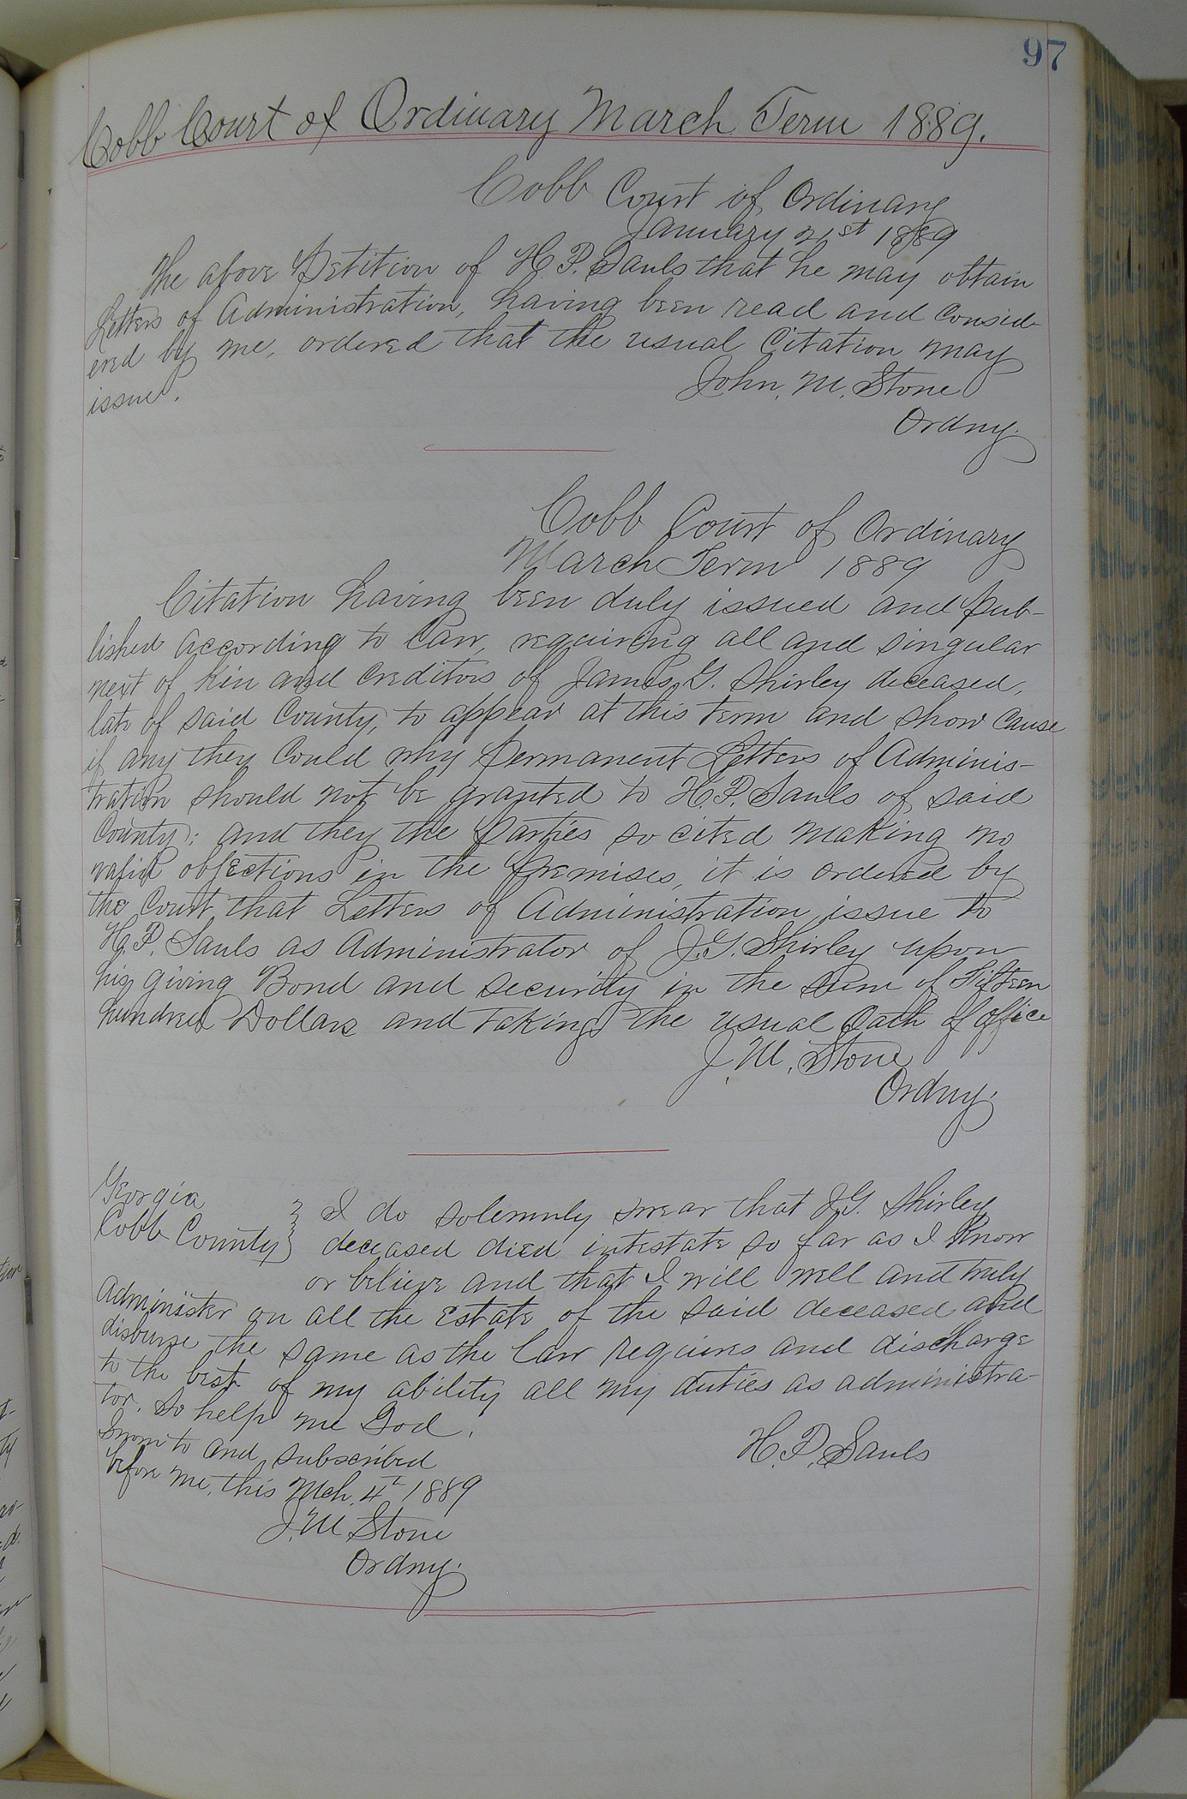 97
Cobb Court of Ordinary March Term 1889.
Cobb Court of Ordinary
January 21st 1889
The above Petition of H. P. Sauls that he may obtain
Letters of Administration, having been read and consid-
ered by me, ordered that the usual Citation may
issue.
John. M. Stone
Ordny.
Cobb Court of Ordinary
March Term 1889
Citation having been duly issued and Pub-
lished according to Law, requiring all and singular
next of kin and Creditors of James G. Shirley deceased,
late of said County, to appear at this Term and show Cause
if any they Could why Permanent Letters of Adminis-
tration should not be granted to H. P. Sauls of said
County; and they the Parties so cited making no
valid objections in the Premises, it is ordered by
the Court that Letters of Administration issue to
H. P. Sauls as Administrator of J. G. Shirley upon
his giving Bond and security in the sum of Fifteen
hundred Dollars and taking the usual Oath of office
J. M. Stone
Ordny.
Georgia
Cobb County } I do solemnly swear that J. G. Shirley
deceased died intestate so far as I know
or believe and that I will well and truly
Administer on all the Estate of the said deceased and
disburse the same as the Law requires and discharge
to the best of my ability all my duties as administra-
tor. So help me God.
Sworn to and subscribed
before me, this Mch. 4th 1889
H. P. Sauls
J. M Stone
Ordny.